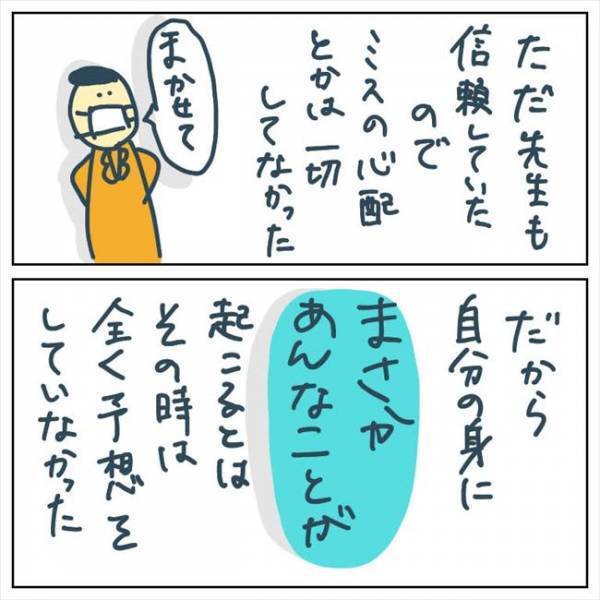 ただ先生も
信頼していた
ので
ミスの心配
とかは一切
してなかった
まかせて
だから
自分の身に
まさか
あんなことが
起こるとは
その時は
全く予想を
していなかった